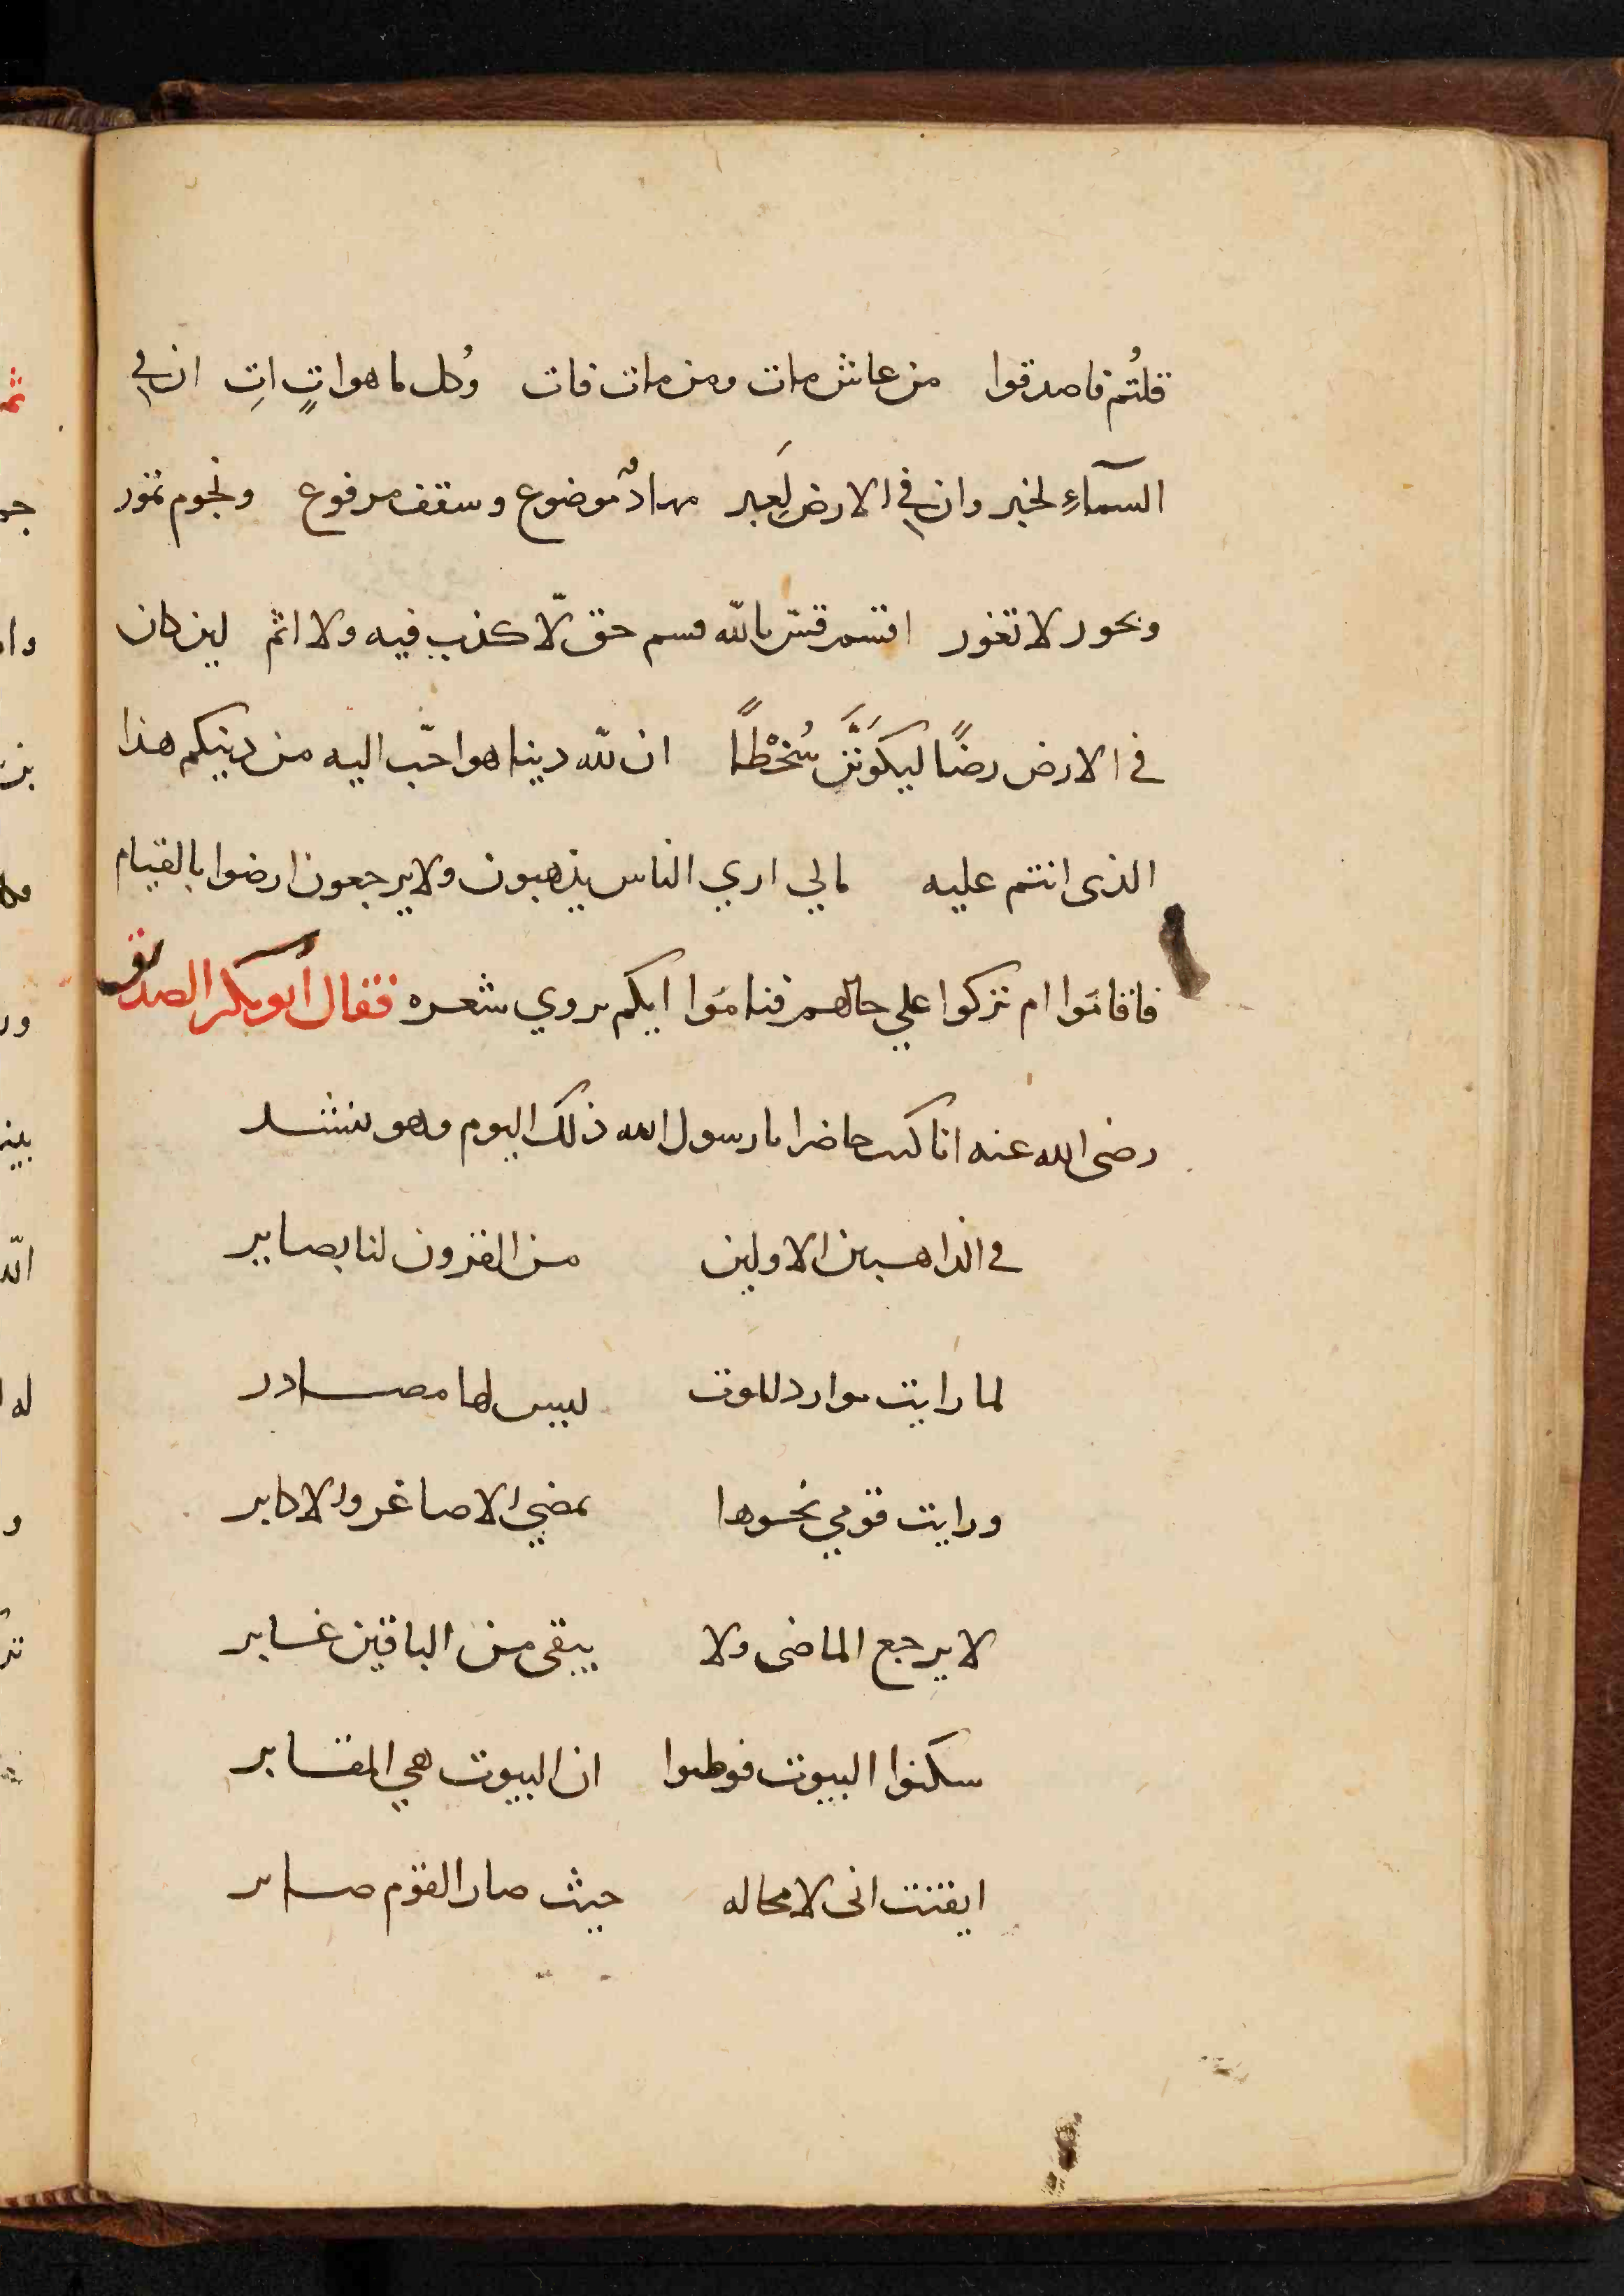 قلتُم فاصدقوا من عاش مات ومن مات فات وُكل ما هو اتٍ اتِ ان في
السمآءِ لخبر وان في الارض لَعِبر مهادٌ موضوع وسقف مرفوع ونجوم تمور
وبحور لا تغور اقسم قسّ بالله قسم حق لّا كذب فيه ولا اثم لين كان
في الارض رضًا ليكوَنَّن سُخْطًا ان لله دينا هو احّب اليه من دينكم هذا
الذى انتم عليه مالي اري الناس يذهبون ولا يرجعون ارضوا بالقيام
فاقامَوا ام تركوا علي حالهم فنامَوا ايكم يروي شعره فقال أبو بكر الصديق
رضى الله عنه انا كنت حاضرا يا رسول الله ذلك اليوم وهو ينشد
في الذاهبين الاولين من القرون لنا بصاير
لما رايت موارد للموت ليس لها مصادر
ورايت قومي نحوها يمضي الاصاغر والاكابر
لا يرجع الماضى ولا يبقى من الباقين غابر
سكنوا البيوت فوطنوا ان البيوت هي المقابر
ايقنت انى لا محاله حيث صار القوم صاير